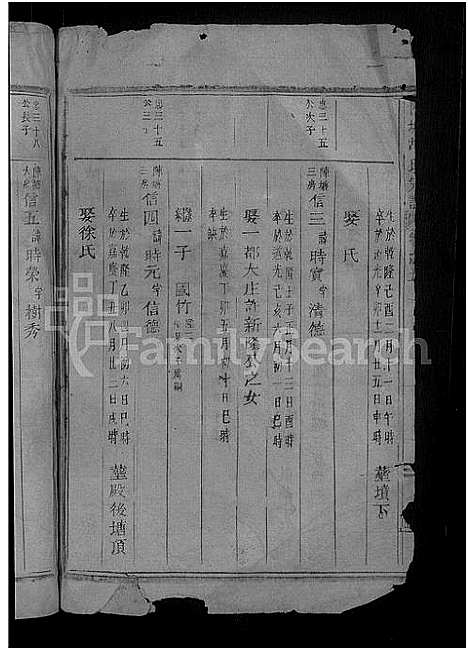 生於乾隆己酉二月十一日午時
卒於道光辛卯十二月廿五日申時 葬墳下
娶 氏
忠三十五公次子
陣塘三房
信三諱時實字清德
生於乾隆壬子正月十二日酉時
卒於道光己亥六月初一日巳時
娶一都大庄許新隆公之女
生於嘉慶丁卯五月初十日巳時
卒缺
繼一子 國竹
忠三十五公三子
陣塘三房
信四諱時元字信德
生於乾隆乙卯 月初六日巳時
卒於嘉慶丁丑八月廿二日戌時 葬殿後塘頂
娶徐氏
忠三十八公長子
陣塘大房
信五諱時榮字樹秀
FamilySearch